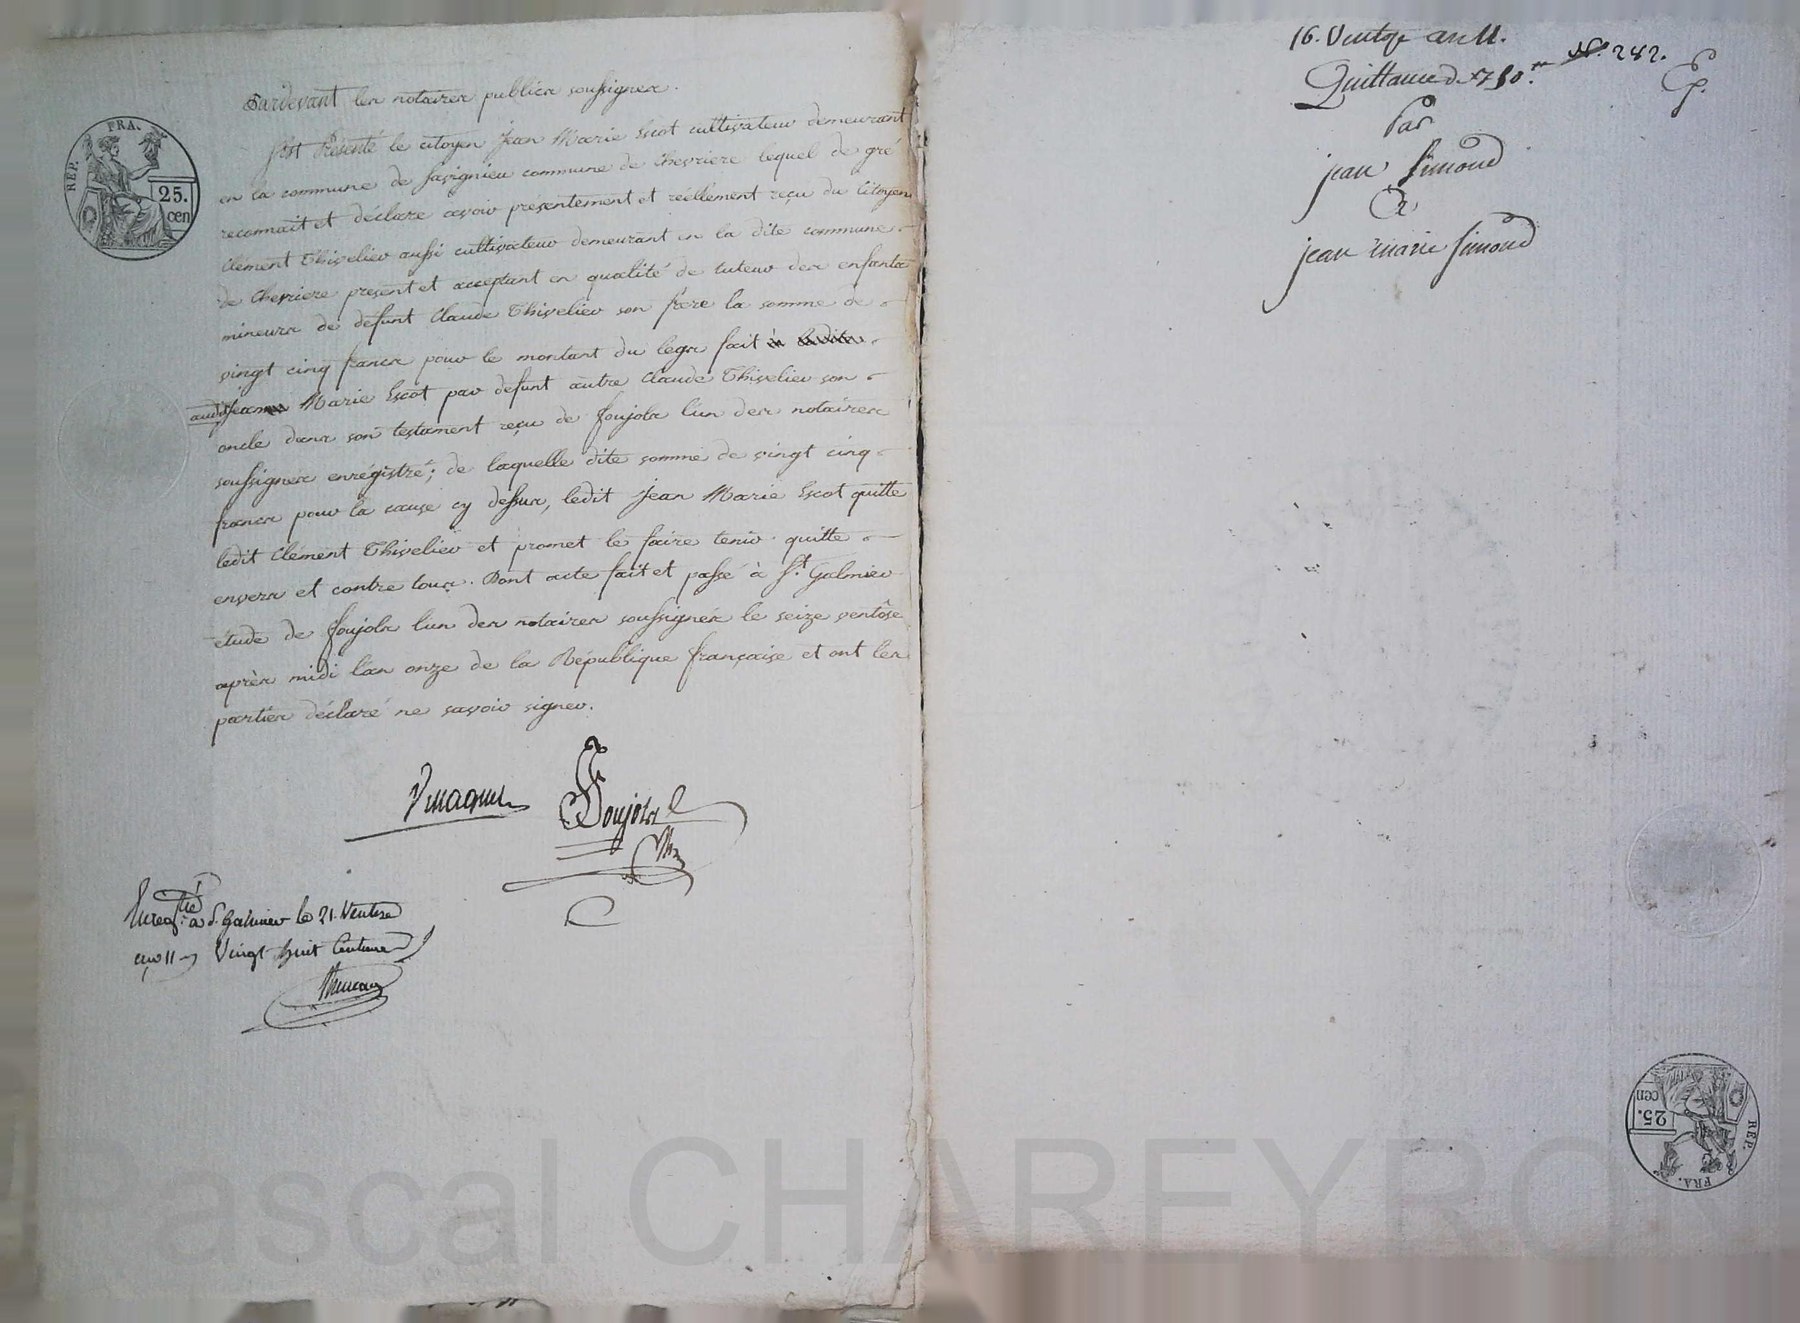 Pardevant les notaires publics soussignés.
fut Présenté le citoyen Jean Marie Escot cultivateur demeurant
en la commune de Savignieu commune de Chevriere lequel de gré
reconnait et déclare avoir presentement et réellement reçu du Citoyen
Clement Thivelier aussi cultivateur demeurant en la dite commune
de Chevriere present et acceptant en qualité de tuteur des enfants
mineurs de defunt Claude Thivelier son frere la somme de
vingt cinq francs pour le montant du legs fait
audit Jean Marie Escot par defunt autre Claude Thivelier son
oncle dans son testament reçu de Soujols l'un des notaires
soussignés enrégistré; de laquelle dite somme de vingt cinq
francs pour la cause cy dessus, ledit Jean Marie Escot quitte
ledit Clement Thivelier et promet le faire tenir quitte
envers et contre tous. Dont acte fait et passé à St. Galmier
étude de Soujols l'un des notaires soussignés le seize ventôse
après midi l'an onze de la République française et ont les
parties déclaré ne savoir signer.
Soujols
Enregtré à St. Galmier le 21. Ventose
an 11 Vingt huit Centimes
REP. FRA.
25.
cen
16. Ventose an 11.
N°. 242.
Quittance de
Par
jean Simond
à
jean marie Simond
REP. FRA.
25.
cen
Pascal CHAREYRON